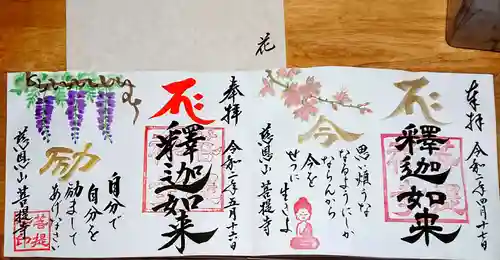 花
奉拝
令和二年四月十七日
釋迦如来
思い煩うな
なるようにしか
ならんから
今を
せつに
生きよ
今
慈恩山菩提寺
奉拝
令和二年五月十六日
釋迦如来
自分で
自分を
励まして
あげなさい
励
慈恩山菩提寺
菩提